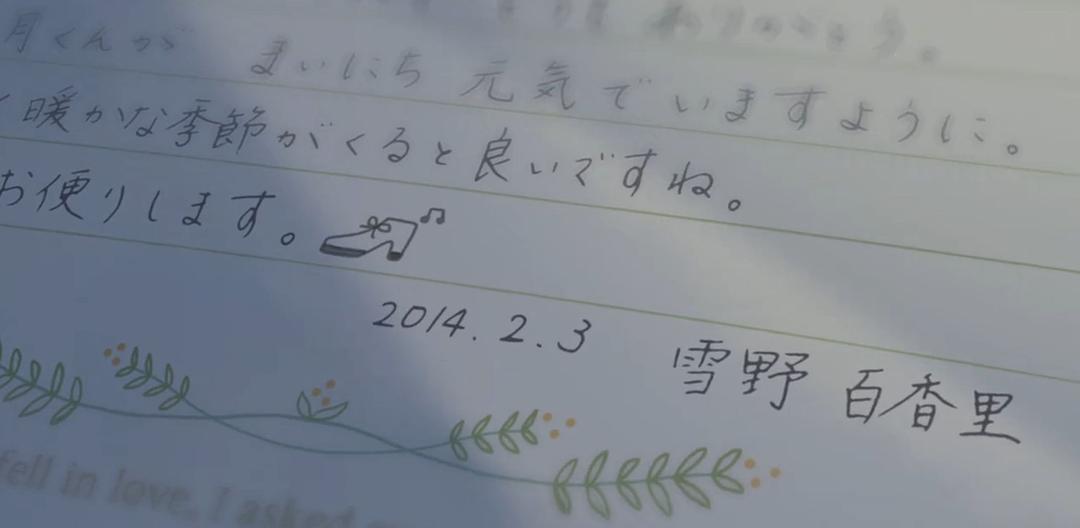 月くんが まいにち 元気でいますように。
暖かな季節がくると良いですね。
お便りします。
2014.2.3 雪野 百香里
fell in love, I asked